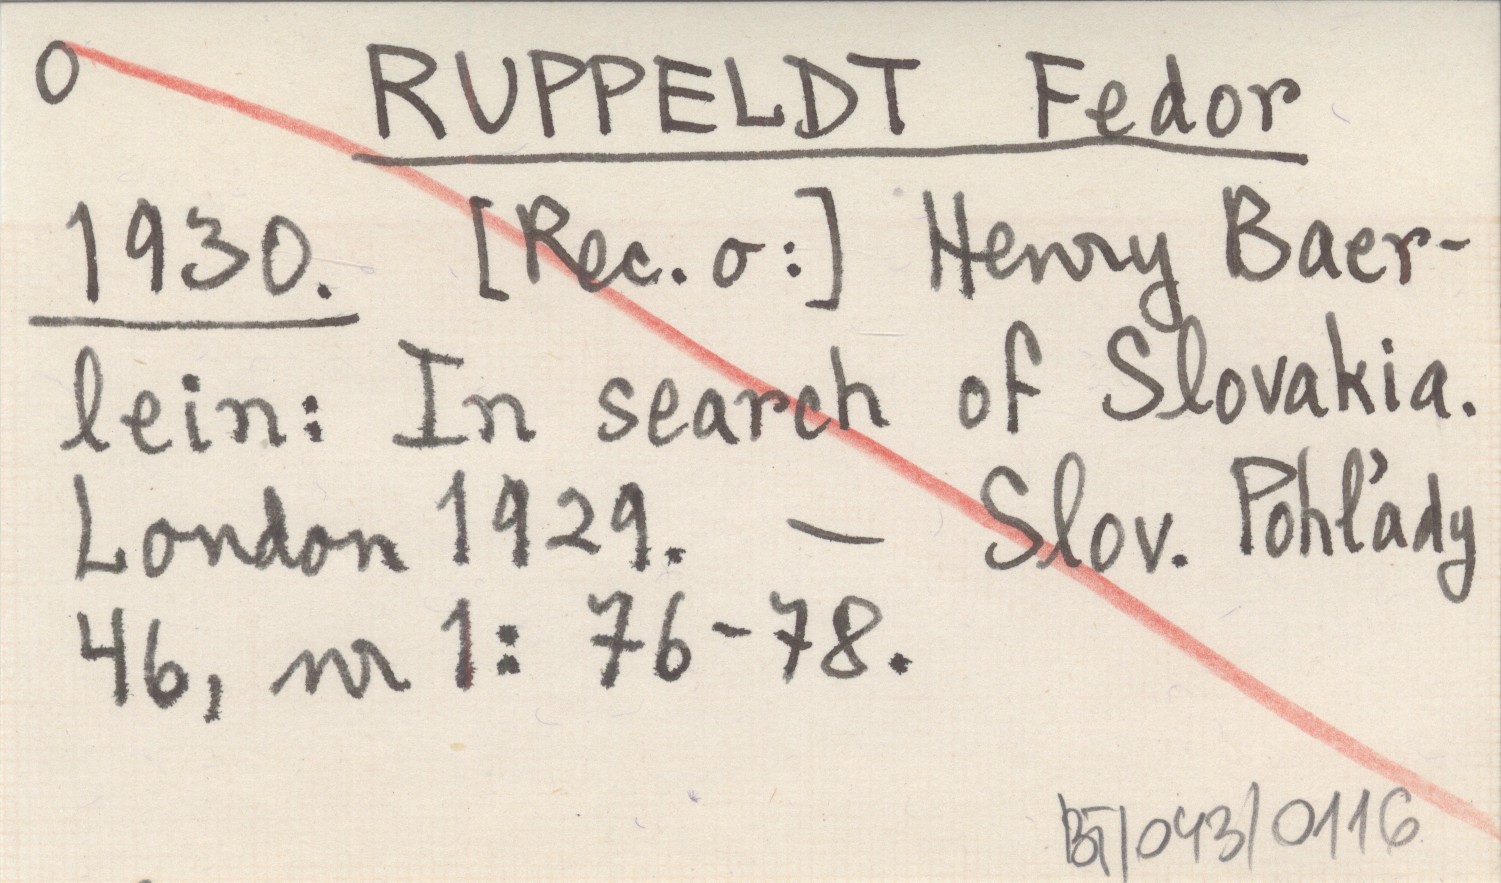 O RUPPELDT Fedor
1930. [Rec. o:] Henry Baer-
lein: In search of Slovakia.
London 1929. — Slov. Pohľady
46, nr 1: 76-78.
BT/043/0116